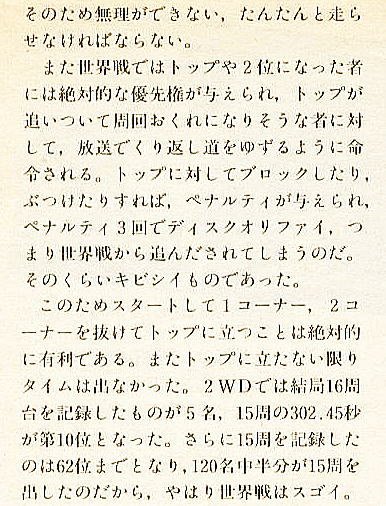 そのため無理ができない，たんたんと走ら
せなければならない。
また世界戦ではトップや２位になった者
には絶対的な優先権が与えられ，トップが
追いついて周回おくれになりそうな者に対
して，放送でくり返し道をゆずるように命
令される。トップに対してブロックしたり，
ぶつけたりすれば，ペナルティが与えられ，
ペナルティ３回でディスクオリファイ，つ
まり世界戦から追んだされてしまうのだ。
そのくらいキビシイものであった。
このためスタートして１コーナー，２コ
ーナーを抜けてトップに立つことは絶対的
に有利である。またトップに立たない限り
タイムは出なかった。２ＷＤでは結局16周
台を記録したものが５名，15周の302.45秒
が第10位となった。さらに15周を記録した
のは62位までとなり，120名中半分が15周を
出したのだから，やはり世界戦はスゴイ。